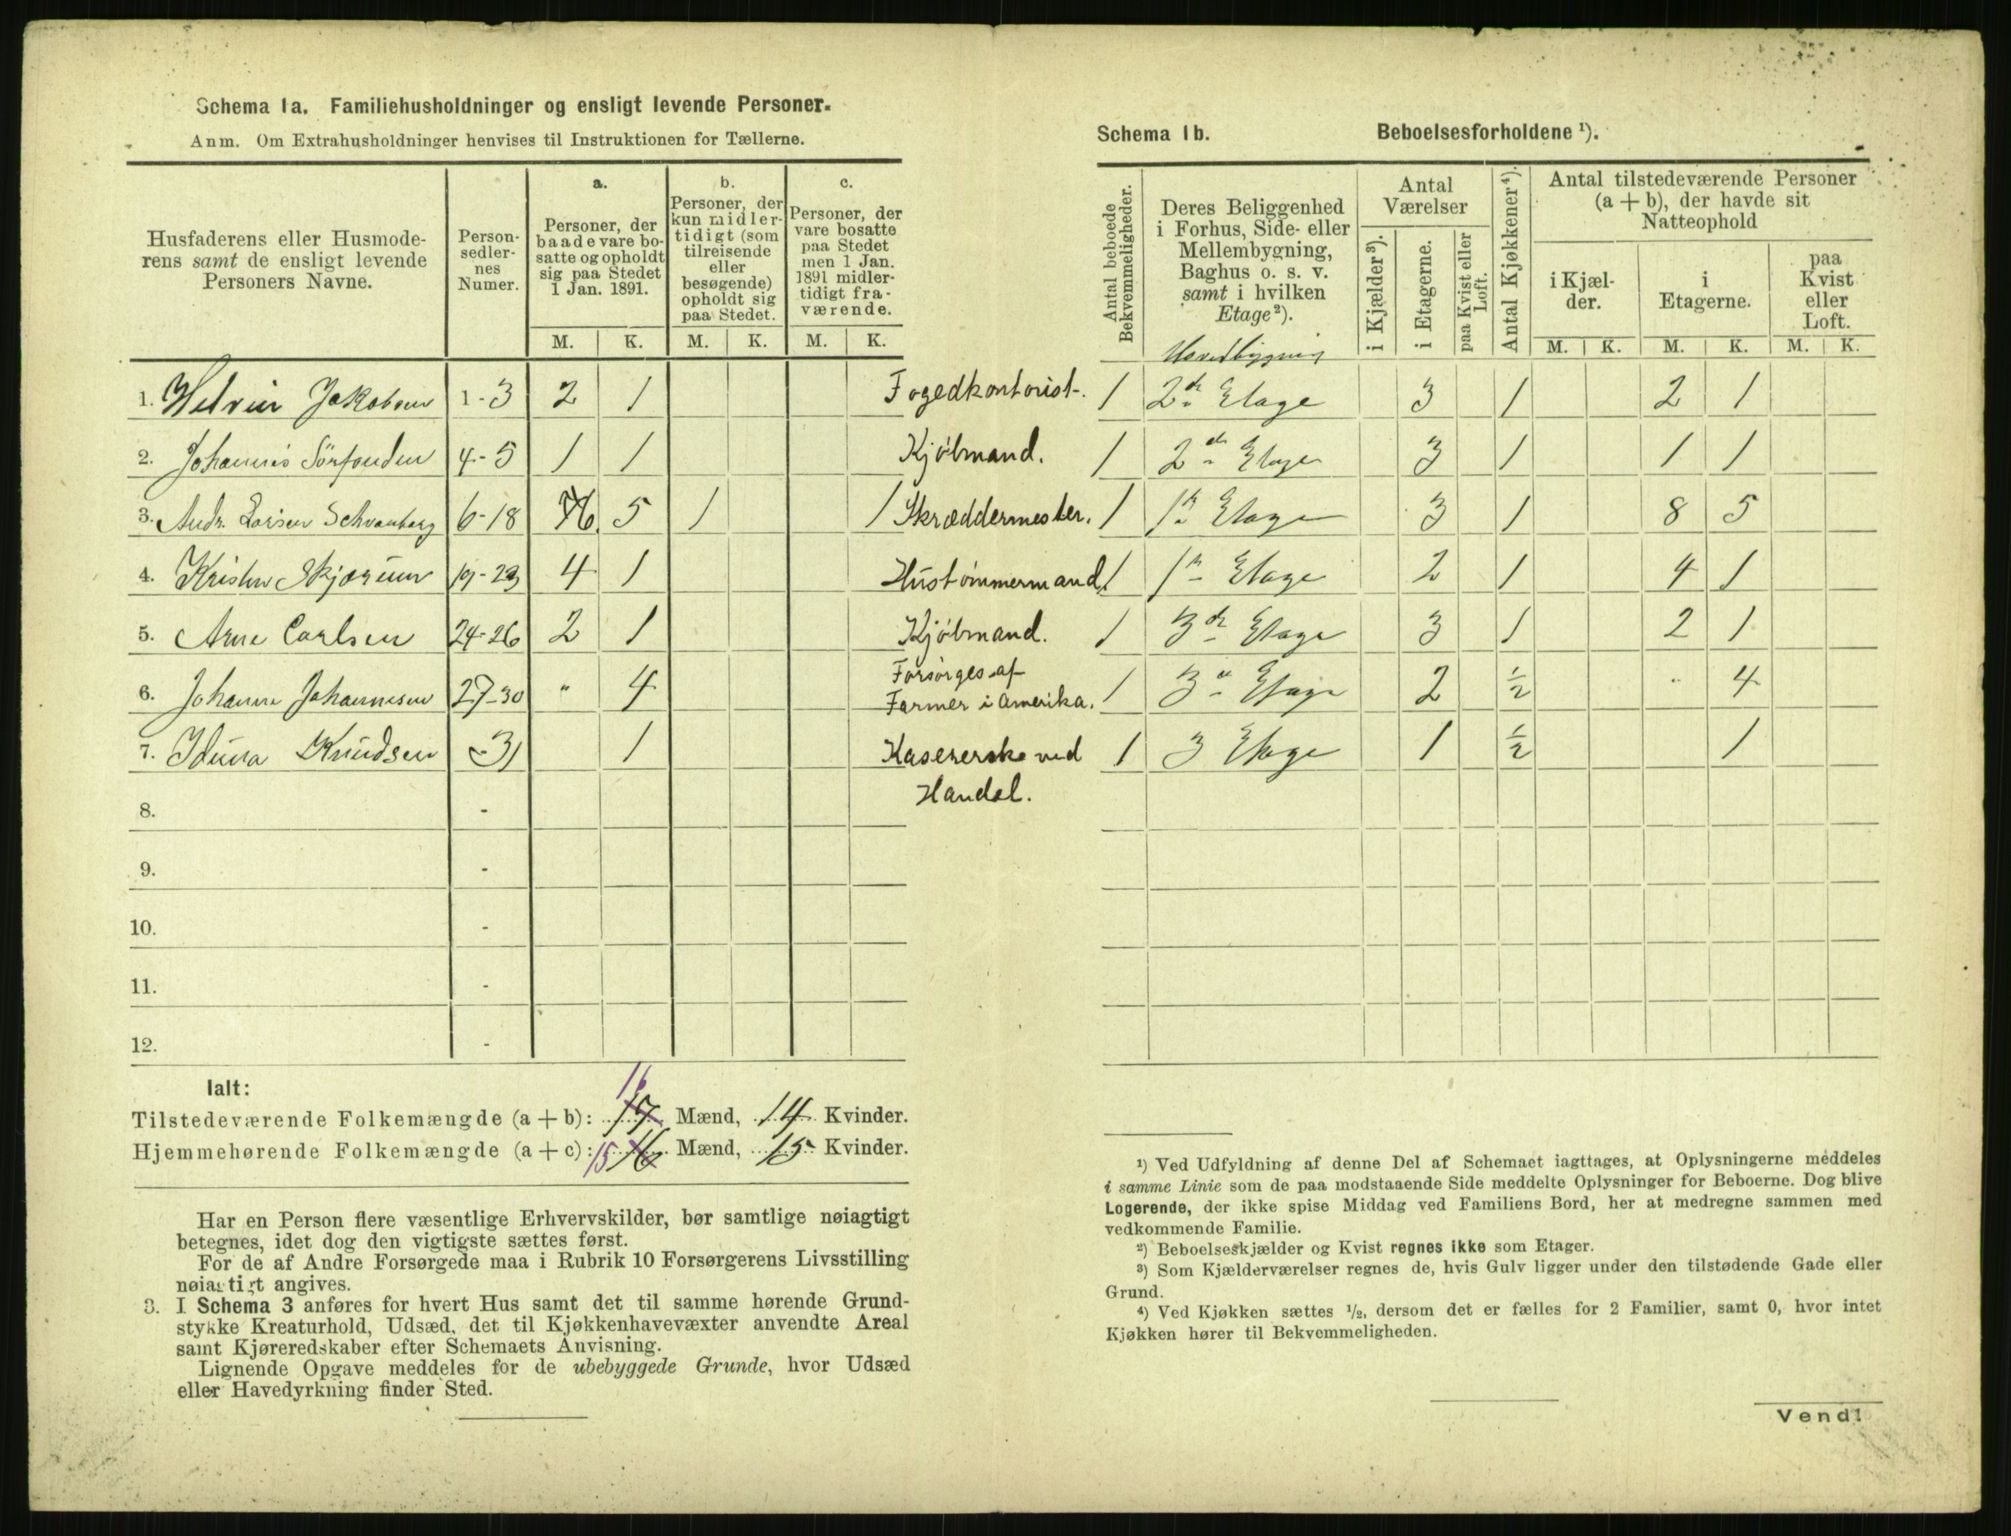 Schema 1a. Familiehusholdninger og ensligt levende Personer.
Anm. Om Extrahusholdninger henvises til Instruktionen for Tællerne.
Husfaderens eller Husmode-
rens samt de ensligt levende
Personers Navne.
Person-
sedler-
nes
Numer.
a.
Personer, der
baade vare bo-
satte og opholdt
sig paa Stedet
1 Jan. 1891.
b.
Personer, der
kun midler-
tidigt (som
tilreisende
eller
besøgende)
opholdt sig
paa Stedet.
c.
Personer, der
vare bosatte
paa Stedet
men 1 Jan.
1891 midler-
tidigt fra-
værende.
M. K. M. K. M. K.
1. Jakobsen 1-3 2 1 Fogedkontorist.
2. Johannes Sørfonden 4-5 1 1 Kjøbmand.
3. Andr. Larsen Schvanberg 6-18 5 1 1 Skræddermester.
4. Kristen Skjærum 19-23 4 1 Hustømmermand
5. Arne Carlsen 24-26 2 1 Kjøbmand.
6. Johanne Johannesen 27-30 " 4 Forsørges af
Farmer i Amerika.
7. Iduna Knudsen -31 1 Kasererske ved
Handel.
8. -
9. -
10. -
11. -
12. -
Ialt:
16
Tilstedeværende Folkemængde (a + b): 17 Mænd, 14 Kvinder.
Hjemmehørende Folkemængde (a + c): 15 16 Mænd, 15 Kvinder.
Har en Person flere væsentlige Erhvervskilder, bør samtlige nøiagtigt
betegnes, idet dog den vigtigste sættes først.
For de af Andre Forsørgede maa i Rubrik 10 Forsørgerens Livsstilling
nøiagtigt angives.
3. I Schema 3 anføres for hvert Hus samt det til samme hørende Grund-
stykke Kreaturhold, Udsæd, det til Kjøkkenhavevæxter anvendte Areal
samt Kjøreredskaber efter Schemaets Anvisning.
Lignende Opgave meddeles for de ubebyggede Grunde, hvor Udsæd
eller Havedyrkning finder Sted.
Schema 1b. Beboelsesforholdene ¹).
Antal beboede
Bekvemmeligheder.
Deres Beliggenhed
i Forhus, Side- eller
Mellembygning,
Baghus o. s. v.
samt i hvilken
Etage²).
Antal
Værelser
i Kjælder³).
i Etagerne.
paa Kvist eller
Loft.
Antal Kjøkkener⁴).
Antal tilstedeværende Personer
(a + b), der havde sit
Natteophold
i Kjæl-
der.
i
Etagerne.
paa
Kvist
eller
Loft.
M. K. M. K. M. K.
Hovedbygning
1 2de Etage 3 1 2 1
1 2de Etage 3 1 1 1
1 1ste Etage 3 1 8 5
1 1ste Etage 2 1 4 1
1 3de Etage 3 1 2 1
1 3de Etage 2 ½ " 4
1 3 Etage 1 ½ 1
¹) Ved Udfyldning af denne Del af Schemaet iagttages, at Oplysningerne meddeles
i samme Linie som de paa modstaaende Side meddelte Oplysninger for Beboerne. Dog blive
Logerende, der ikke spise Middag ved Familiens Bord, her at medregne sammen med
vedkommende Familie.
²) Beboelseskjælder og Kvist regnes ikke som Etager.
³) Som Kjælderværelser regnes de, hvis Gulv ligger under den tilstødende Gade eller
Grund.
⁴) Ved Kjøkken sættes ½, dersom det er fælles for 2 Familier, samt 0, hvor intet
Kjøkken hører til Bekvemmeligheden.
Vend!